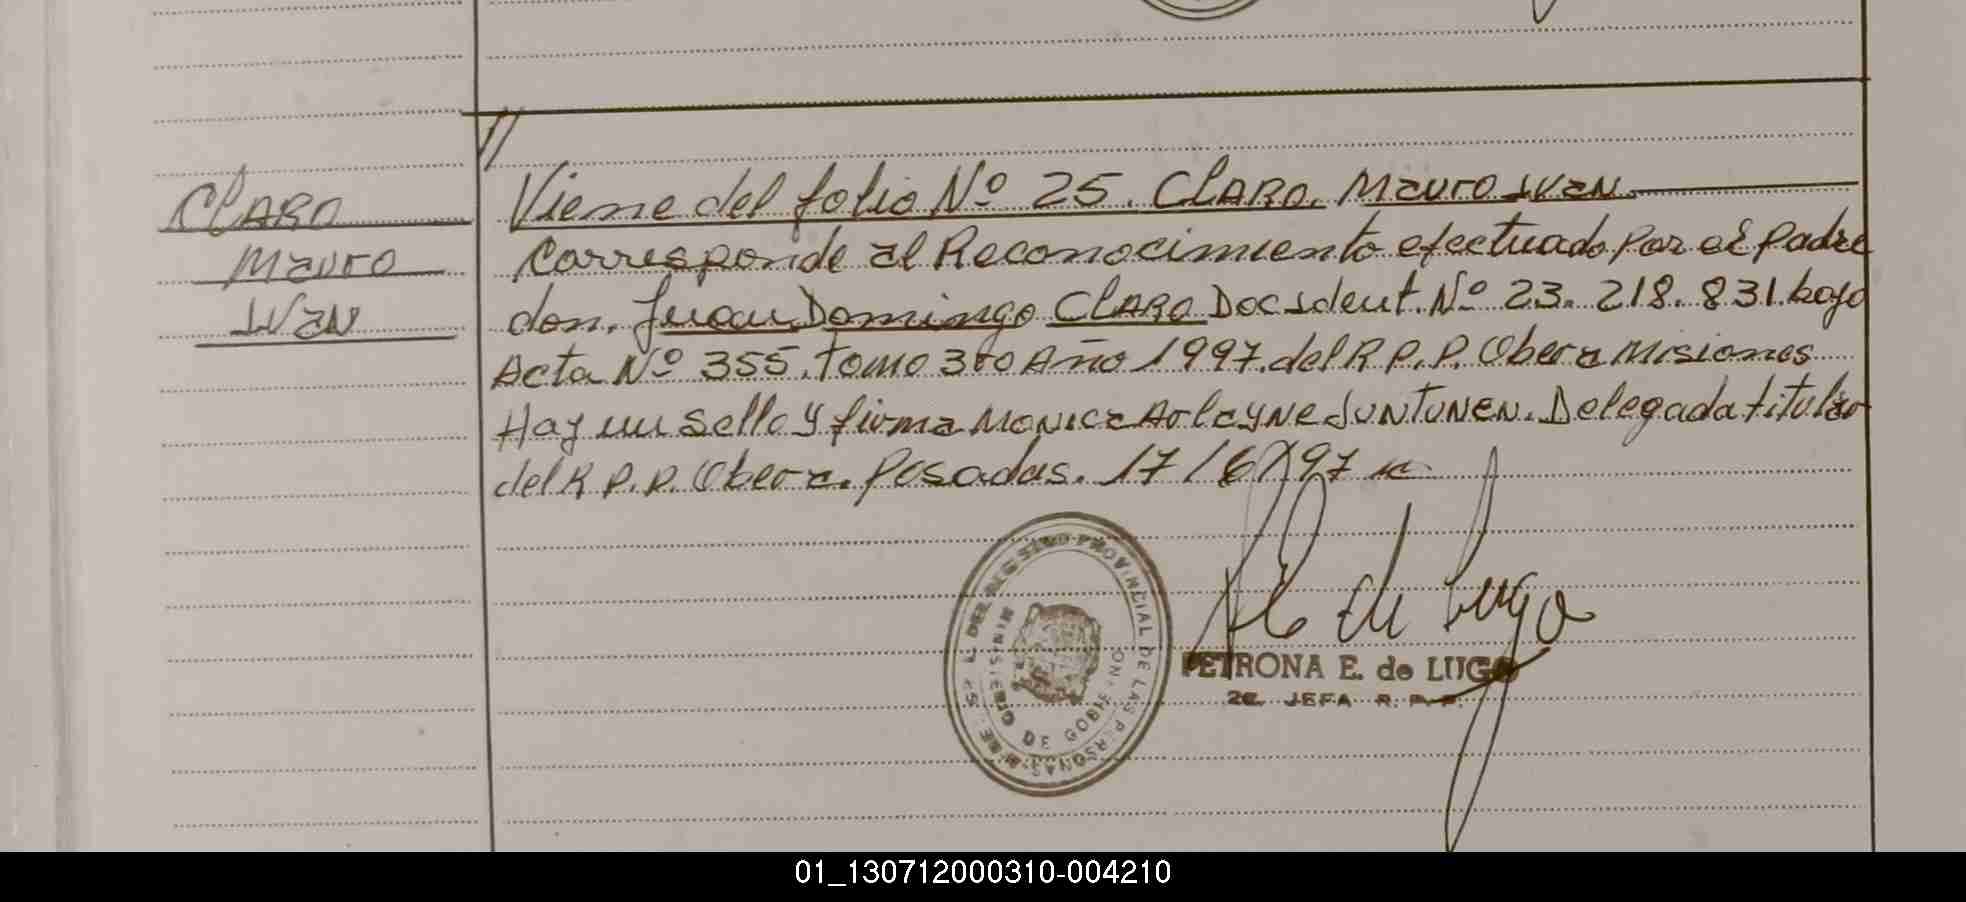 CLARO
Mauro
IVAN
//
Viene del folio Nº 25. CLARO. Mauro IVAN.
Corresponde al Reconocimiento efectuado por el padre
don. Juan Domingo CLARO Doc Ident. Nº 23.218.831. bajo
Acta Nº 355. Tomo 3to Año 1997. del R.P.P. Obera Misiones
Hay un sello y firma MONICA Arleyne JUNTUNEN. Delegada titular
del R.P.P. Obera. Posadas. 17/6/97
DEL REGISTRO PROVINCIAL DE LAS PERSONAS
MINISTERIO DE GOBIERNO
de Lugo
PETRONA E. de LUGO
2a. JEFA R. P. P.
01_130712000310-004210